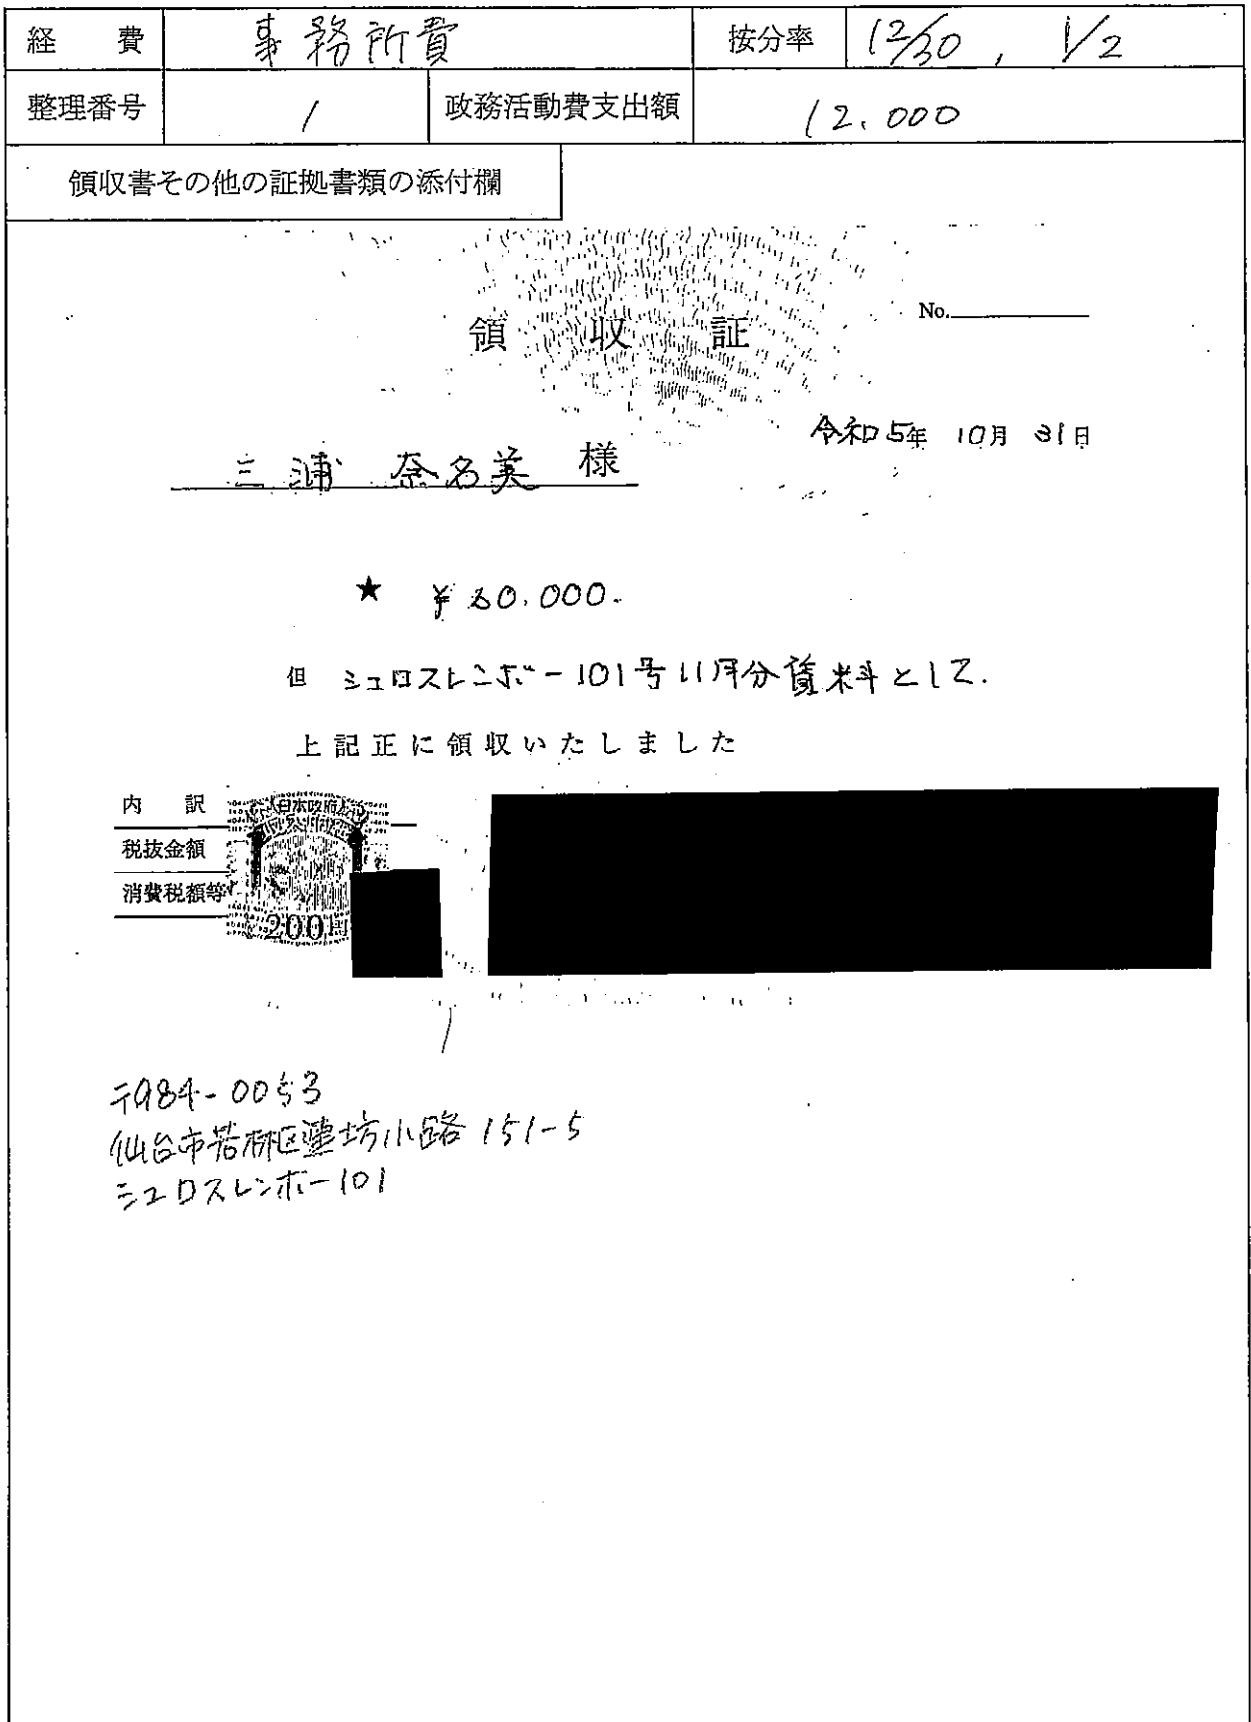 経 費 事務所費 按分率 12/30, 1/2
整理番号 1 政務活動費支出額 12.000
領収書その他の証拠書類の添付欄
領 収 証
No.
令和5年 10月 31日
三浦 奈名美 様
★ ¥60.000.
但 シュロスレンボー101号11月分賃料として.
上記正に領収いたしました
内 訳
税抜金額
消費税額等
日本政府
200円
〒984-0053
仙台市若林区蓮坊小路151-5
シュロスレンボー101